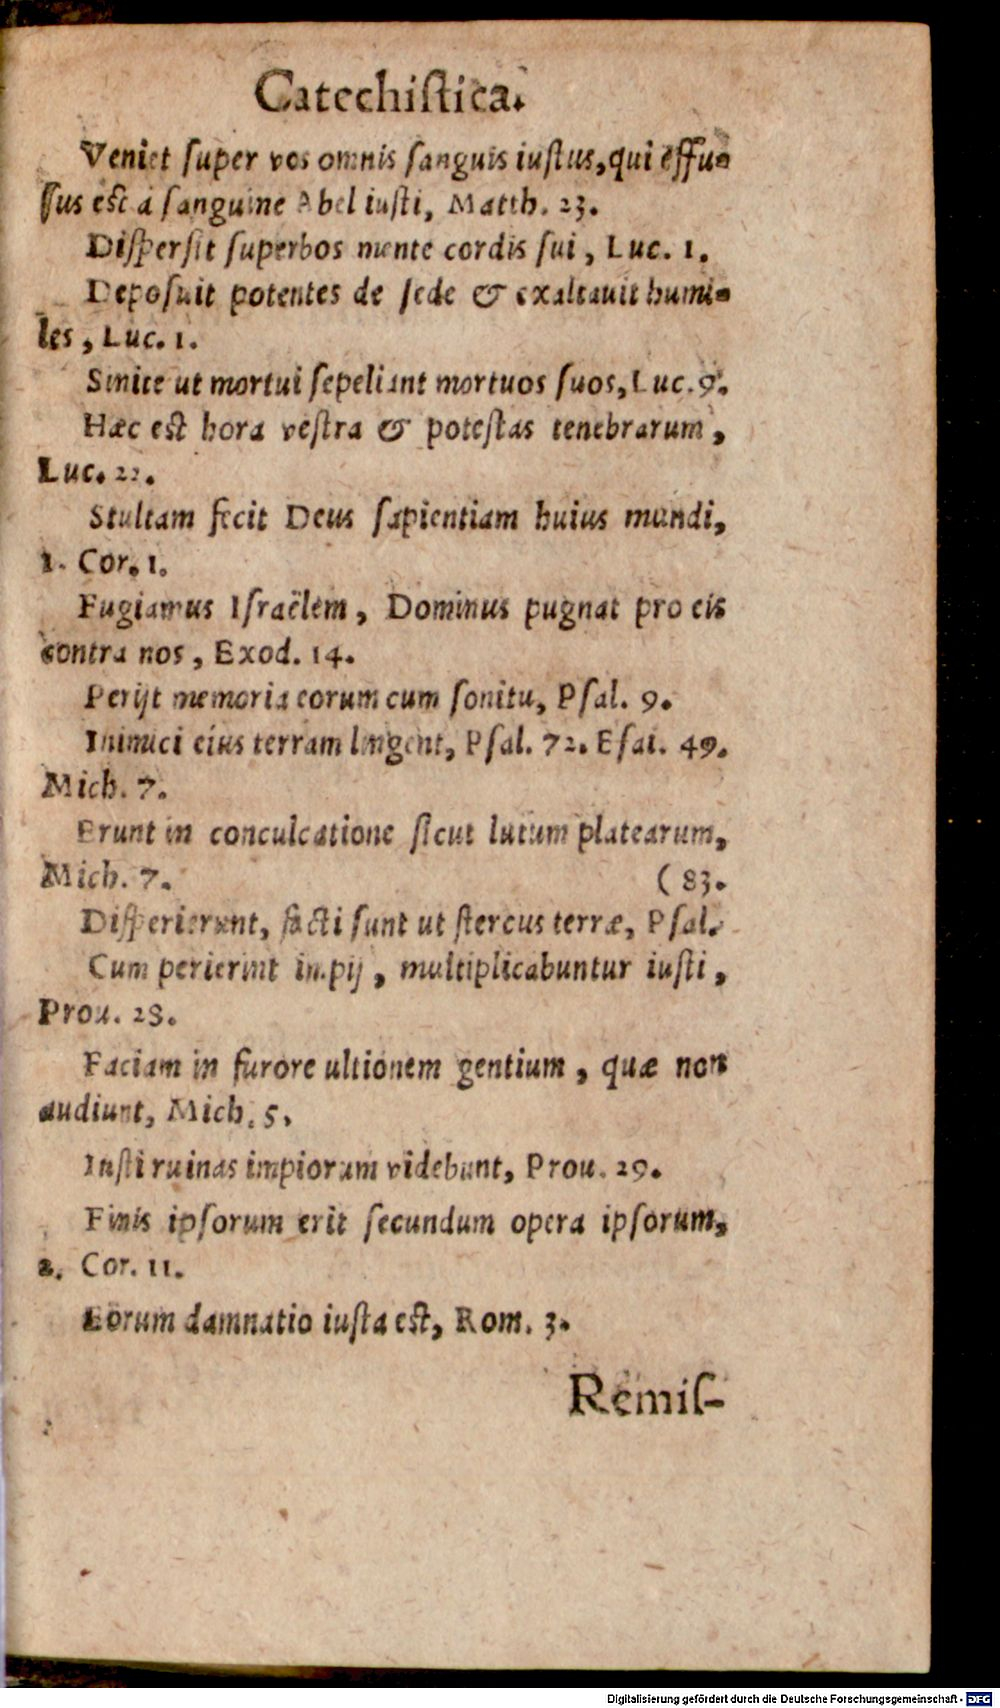 Catechiſtica.
Veniet ſuper vos omnis ſanguis iuſtus, qui effu-
ſus eſt à ſanguine Abel iuſti, Matth. 23.
Diſperſit ſuperbos mente cordis ſui, Luc. 1.
Depoſuit potentes de ſede & exaltauit humi-
les, Luc. 1.
Sinite ut mortui ſepeliant mortuos ſuos, Luc. 9.
Hæc eſt hora veſtra & poteſtas tenebrarum,
Luc. 22.
Stultam fecit Deus ſapientiam huius mundi,
1. Cor. 1.
Fugiamus Iſraëlem, Dominus pugnat pro eis
contra nos, Exod. 14.
Perijt memoria eorum cum ſonitu, Pſal. 9.
Inimici eius terram lingent, Pſal. 72. Eſai. 49.
Mich. 7.
Erunt in conculcatione ſicut lutum platearum,
Mich. 7. (83.
Diſperierunt, facti ſunt ut ſtercus terræ, Pſal.
Cum perierint impij, multiplicabuntur iuſti,
Prou. 28.
Faciam in furore ultionem gentium, quæ non
audiunt, Mich. 5.
Iuſti ruinas impiorum videbunt, Prou. 29.
Finis ipſorum erit ſecundum opera ipſorum,
2. Cor. 11.
Eorum damnatio iuſta eſt, Rom. 3.
Remiſ-
Digitalisierung gefördert durch die Deutsche Forschungsgemeinschaft - DFG